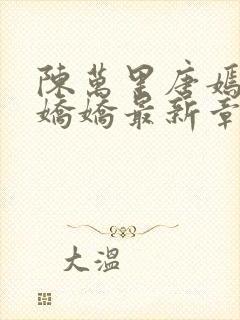 陳萬里唐嫣
嬌嬌最新章
大溫